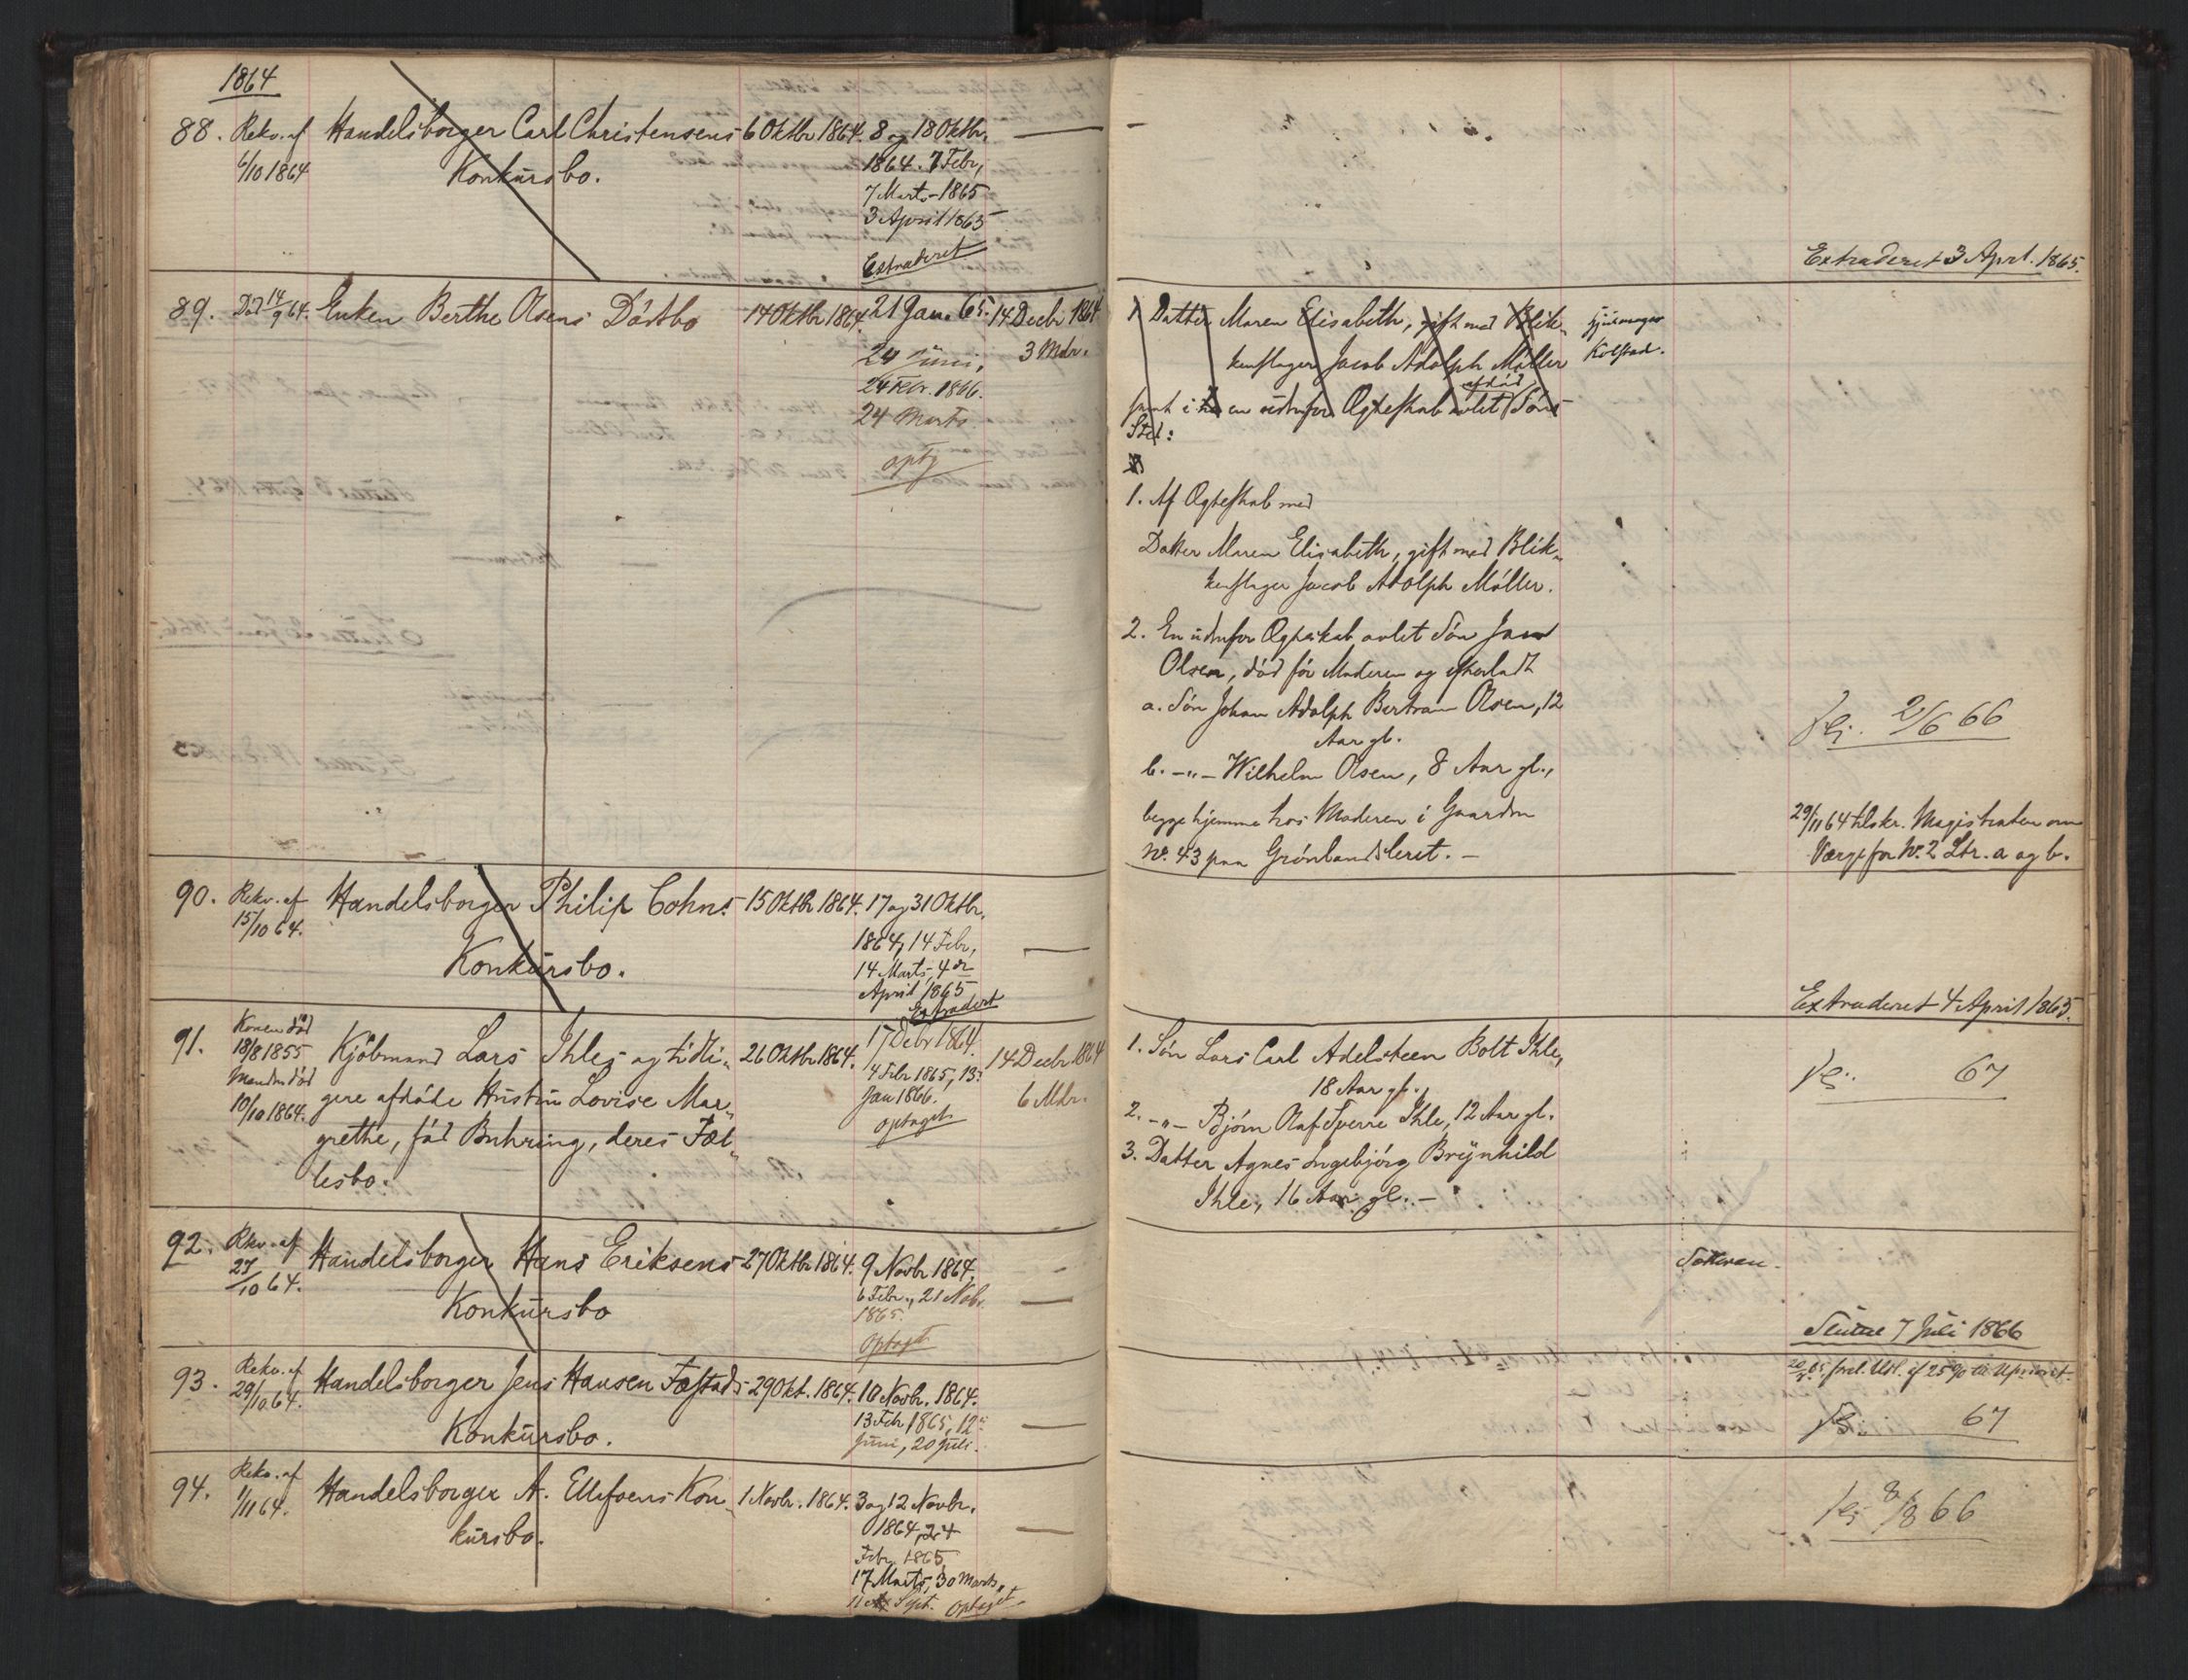 1864
88. Rekv. af Handelsborger Carl Christensens 6 Oktbr 1864. 8 og 18 Oktbr.
6/10 1864 Konkursbo. 1864. 7 Febr,
7 Marts 1865
3 April 1865
Extraderet
Extraderet 3 April. 1865.
89. Död 14/9 64. Enken Berthe Olsens Dödsbo 14 Oktbr 1864. 21 Jan. 65. 14 Decbr 1864
24 Juni, 3 Mdr.
24 Febr. 1866.
24 Marts
optg
1 Datter Maren Elisabeth, gift med Blik-
kenslager Jacob Adolph Möller
samt i en udenfor Ægteskab avlet afdöd Söns
Sted:
1. Af Ægteskab med
Datter Maren Elisabeth, gift med Blik-
kenslager Jacob Adolph Möller.
2. En udenfor Ægteskab avlet Sön
Olsen, död för Moderen og efterladt
a. Sön Johan Adolph Bertram Olsen, 12
Aar gl.
b. -"- Wilhelm Olsen, 8 Aar gl.,
begge hjemme hos Moderen i Gaarden
No. 43 paa Grönlandsleret. -
2/6 66
29/11 64 tilskr. Magistraten om
Værge for No. 2 Ltr. a og b.
90. Rekv. af Handelsborger Philip Cohns 15 Oktbr 1864. 17 og 31 Oktbr.
15/10 64. Konkursbo. 1864, 14 Febr,
14 Marts, 4de
April 1865
Extradert
Extraderet 4 April 1865.
91. Konen död Kjöbmand Lars Ihles og tidli- 26 Oktbr 1864. 17 Debr 1864. 14 Decbr 1864
18/8 1855 4 Febr 1865, 13. 6 Mdr.
Manden död gere afdöde Hustru Lovise Mar- Jan 1866.
10/10 1864. grethe, föd Buhring, deres Fæl- optaget
lesbo.
1. Sön Lars Carl Adelsteen Bolt Ihle,
18 Aar gl.
2. -"- Björn Olaf Sverre Ihle, 12 Aar gl.
3. Datter Agnes Ingebjörg Brynhild
Ihle, 16 Aar gl. -
67
92. Rekv. af Handelsborger Hans Eriksens 27 Oktbr 1864. 9 Novbr 1864,
27/10 64. Konkursbo 6 Febr., 21 Nobr.
1865.
Optaget
Sluttet 7 Juli 1866
93. Rekv. af Handelsborger Jens Hansen Fæstads 29 Okt. 1864. 10 Novbr. 1864.
29/10 64. Konkursbo. 13 Febr 1865, 12te
Juni, 20 Juli.
67
94. Rekv. af Handelsborger A. Ellefsens Kon- 1 Novbr. 1864. 3 og 12 Novbr.
1/11 64. kursbo. 1864, 24
Febr 1865
17 Marts, 30 Marts,
11 Sept. Optaget
8/8 66